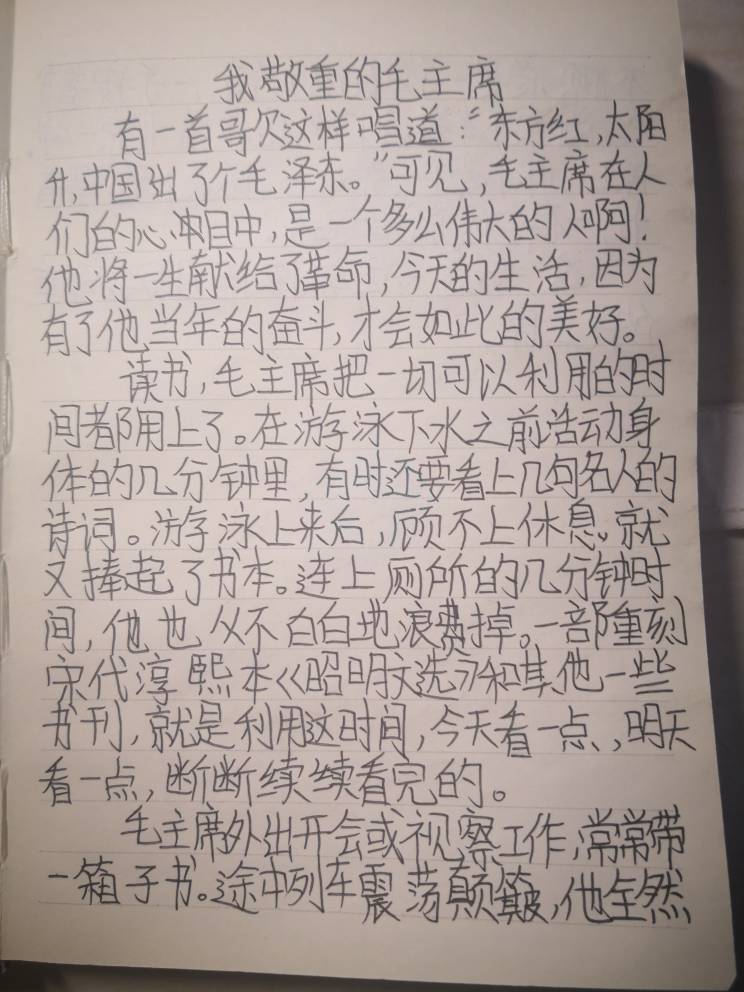 我敬重的毛主席
有一首歌这样唱道："东方红,太阳
升,中国出了个毛泽东。"可见,毛主席在人
们的心中,是一个多么伟大的人啊!
他将一生献给了革命,今天的生活,因为
有了他当年的奋斗,才会如此的美好。
读书,毛主席把一切可以利用的时
间都用上了。在游泳下水之前活动身
体的几分钟里,有时还要看上几句名人的
诗词。游泳上来后,顾不上休息。就
又捧起了书本。连上厕所的几分钟时
间,他也从不白白地浪费掉。一部重刻
宋代淳熙本《昭明文选》和其他一些
书刊,就是利用这时间,今天看一点,明天
看一点,断断续续看完的。
毛主席外出开会或视察工作,常常带
一箱子书。途中列车震荡颠簸,他全然